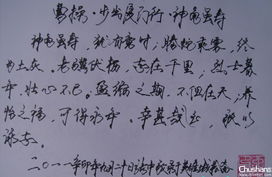 曹操·步出夏门行·神龟虽寿
神龟虽寿，犹有竟时；腾蛇乘雾，终
为土灰。老骥伏枥，志在千里；烈士暮
年，壮心不已。盈缩之期，不但在天；养
怡之福，可得永年。幸甚至哉，歌以
咏志。
二〇一一年
Chushan8.com